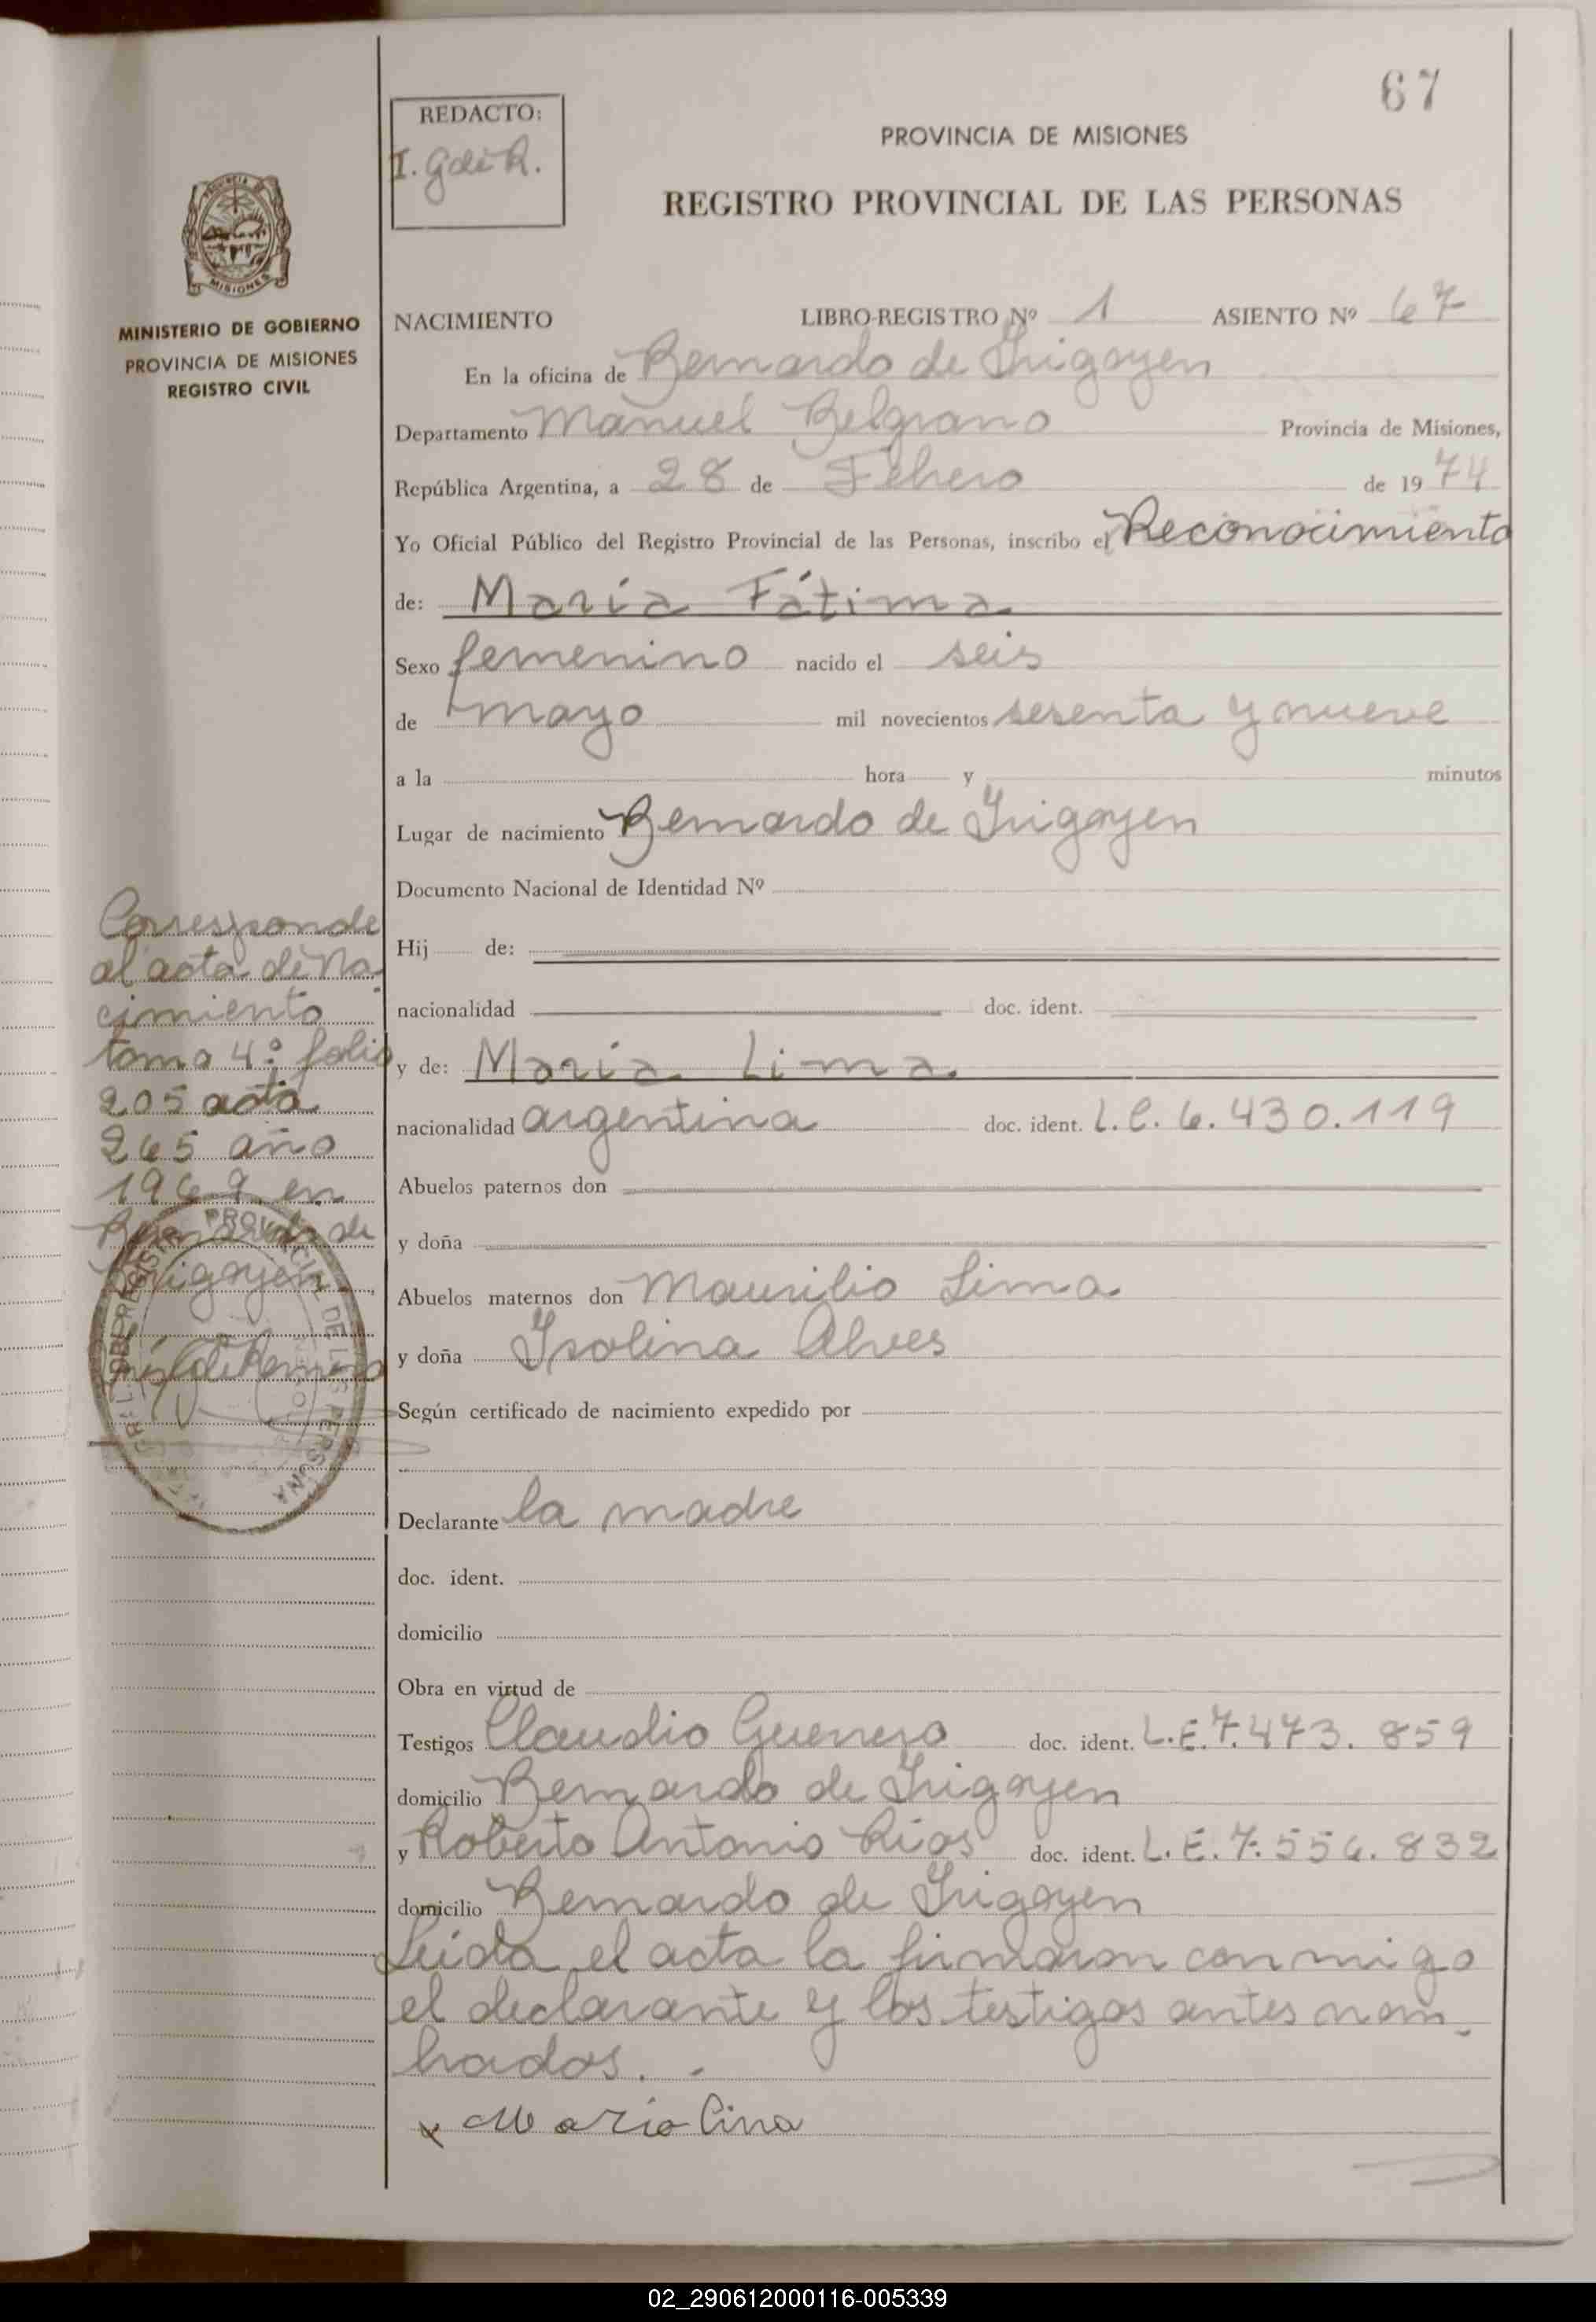 67
REDACTO:
I. G de R.
PROVINCIA DE MISIONES
REGISTRO PROVINCIAL DE LAS PERSONAS
MISIONES
MINISTERIO DE GOBIERNO
PROVINCIA DE MISIONES
REGISTRO CIVIL
NACIMIENTO LIBRO-REGISTRO Nº 1 ASIENTO Nº 67
En la oficina de Bernardo de Irigoyen
Departamento Manuel Belgrano Provincia de Misiones,
República Argentina, a 28 de Febrero de 1974
Yo Oficial Público del Registro Provincial de las Personas, inscribo el Reconocimiento
de: María Fátima
Sexo femenino nacido el seis
de mayo mil novecientos sesenta y nueve
a la hora y minutos
Lugar de nacimiento Bernardo de Irigoyen
Documento Nacional de Identidad Nº
Hij de:
nacionalidad doc. ident.
y de: María Lima
nacionalidad argentina doc. ident. L.C. 6.430.119
Abuelos paternos don
y doña
Abuelos maternos don Maurilio Lima
y doña Isolina Alves
Según certificado de nacimiento expedido por
Declarante la madre
doc. ident.
domicilio
Obra en virtud de
Testigos Claudio Guerrero doc. ident. L.E. 7.473.859
domicilio Bernardo de Irigoyen
y Roberto Antonio Ríos doc. ident. L.E. 7.556.832
domicilio Bernardo de Irigoyen
Leída el acta la firmaron conmigo
el declarante y los testigos antes nom-
brados.
x Maria Lima
Corresponde
al acta de Na
cimiento
tomo 4º folio
205 acta
265 año
1969 en
Bernardo de
Irigoyen
02_290612000116-005339